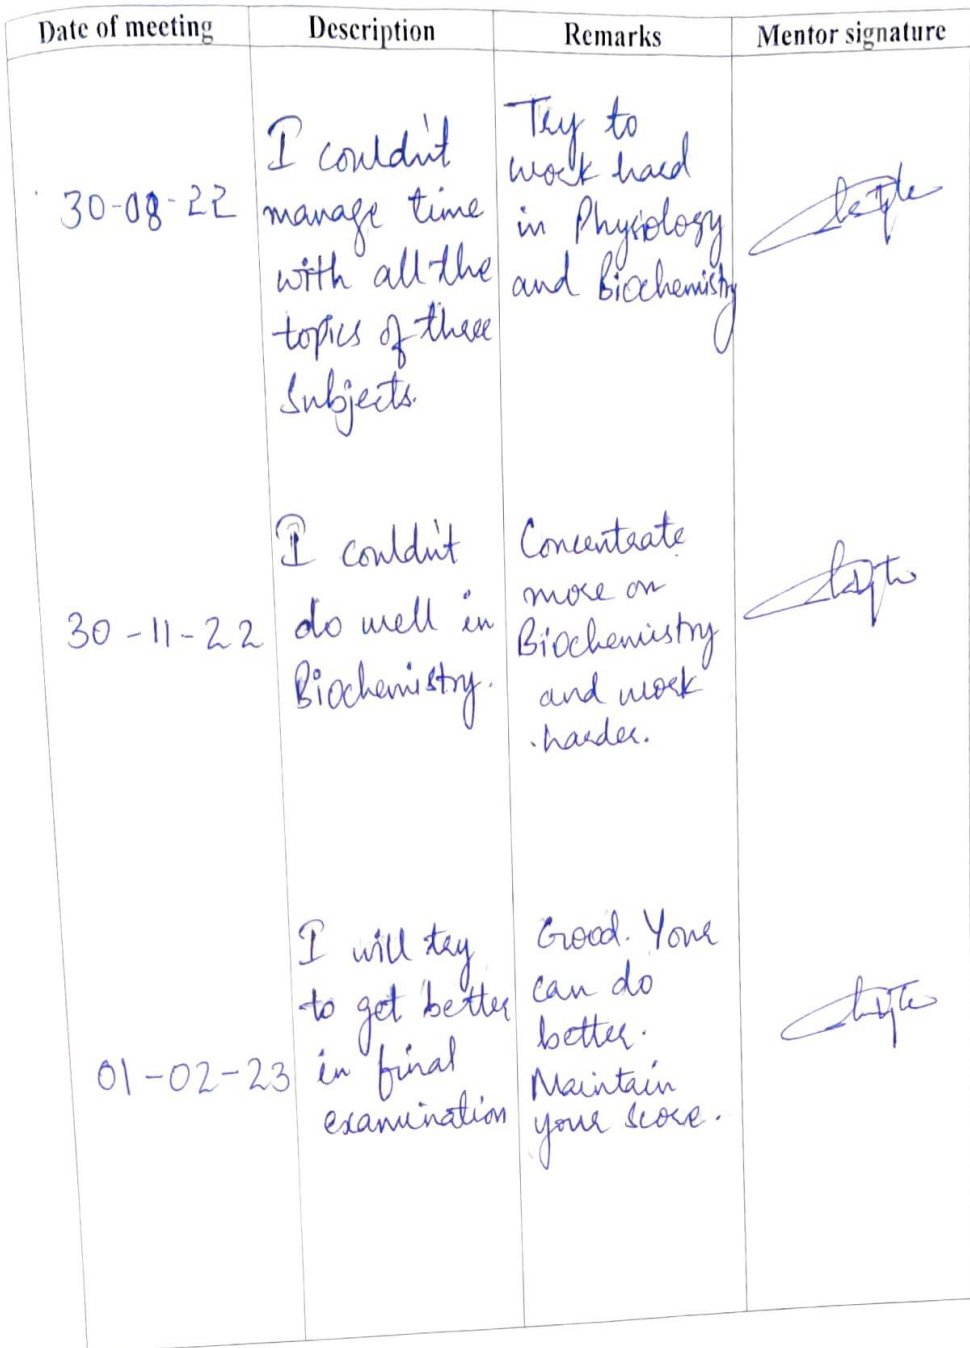 Date of meeting Description Remarks Mentor signature
30-08-22
I couldn't
manage time
with all the
topics of these
Subjects.
Try to
work hard
in Physiology
and Biochemistry
30-11-22
I couldn't
do well in
Biochemistry.
Concentrate
more on
Biochemistry
and work
harder.
01-02-23
I will try
to get better
in final
examination
Good. Your
can do
better.
Maintain
your score.